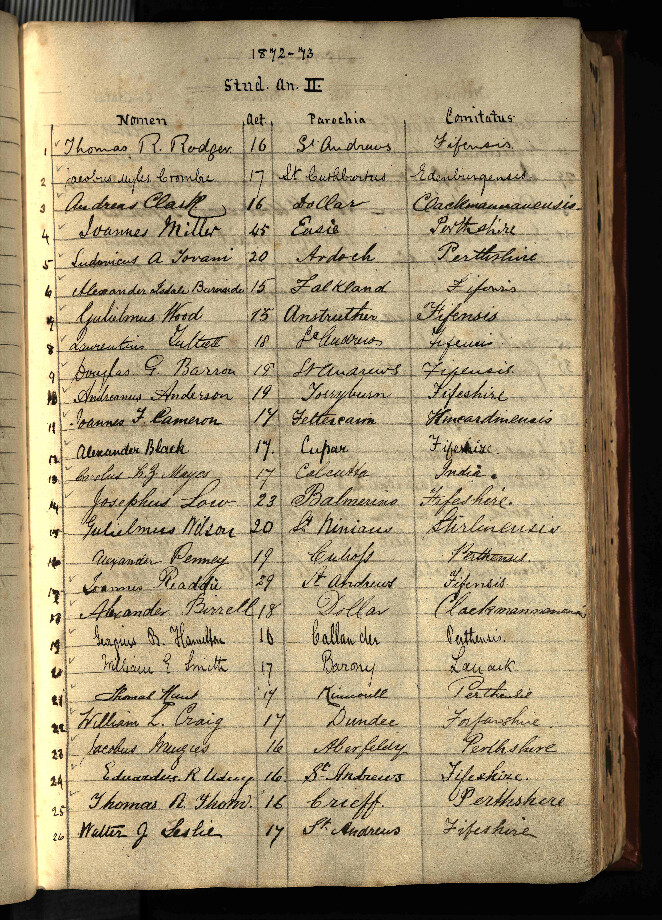 1872-73
Stud. An. II
Nomen Aet. Parochia Comitatus
1 Thomas R. Rodger 16 St Andrews Fifensis
2 Jacobus Myles Crombie 17 St Cuthbertus Edenburgensis
3 Andreas Clark 16 Dollar Clackmannanensis
4 Joannes Miller 25 Eassie Perthshire
5 Ludovicus A 20 Ardoch Perthshire
6 Alexander 15 Falkland Fifensis
7 Gulielmus Wood 15 Anstruther Fifensis
8 Laurentius 18 St Andrews Fifensis
9 Douglas G. Barron 19 St Andrews Fifensis
10 Andreanus Anderson 19 Torryburn Fifeshire
11 Joannes F. Cameron 17 Fettercairn Kincardinensis
12 Alexander Black 17. Cupar Fifeshire.
13 17 Calcutta India.
14 Josephus Low 23 Balmerino Fifeshire.
15 Gulielmus Wilson 20 St. Ninians Stirlinensis
16 Alexander Penney 19 Culross Perthensis.
17 Joannes 29 St Andrews Fifensis
18 Alexander Birrell 18 Dollar Clackmannanensis
19 Georgius R. Hamilton 16 Callander Perthensis.
20 William G. Smith 17 Barony Lanark
21 Thomas Hunt 17 Kinnoull Perthensis
22 William L. Craig 17 Dundee Forfarshire.
23 Jacobus Menzies 16 Aberfeldy Perthshire
24 Eduardus R 16 St. Andrews Fifeshire.
25 Thomas A. Thom. 16 Crieff. Perthshire
26 Walter J Leslie 17 St. Andrews Fifeshire